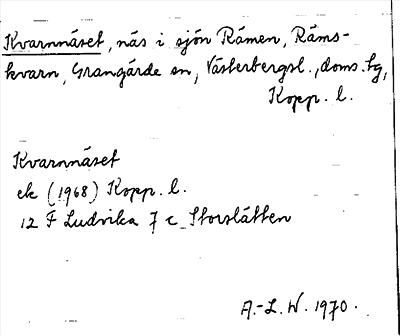 Kvarnnäset, näs i sjön Råmen, Råms-
kvarn, Grangärde sn, Västerbergsl., doms.tg,
Kopp. l.
Kvarnnäset
ek (1968) Kopp. l.
12 F Ludvika 7 c Storslätten
A.-L. W. 1970.